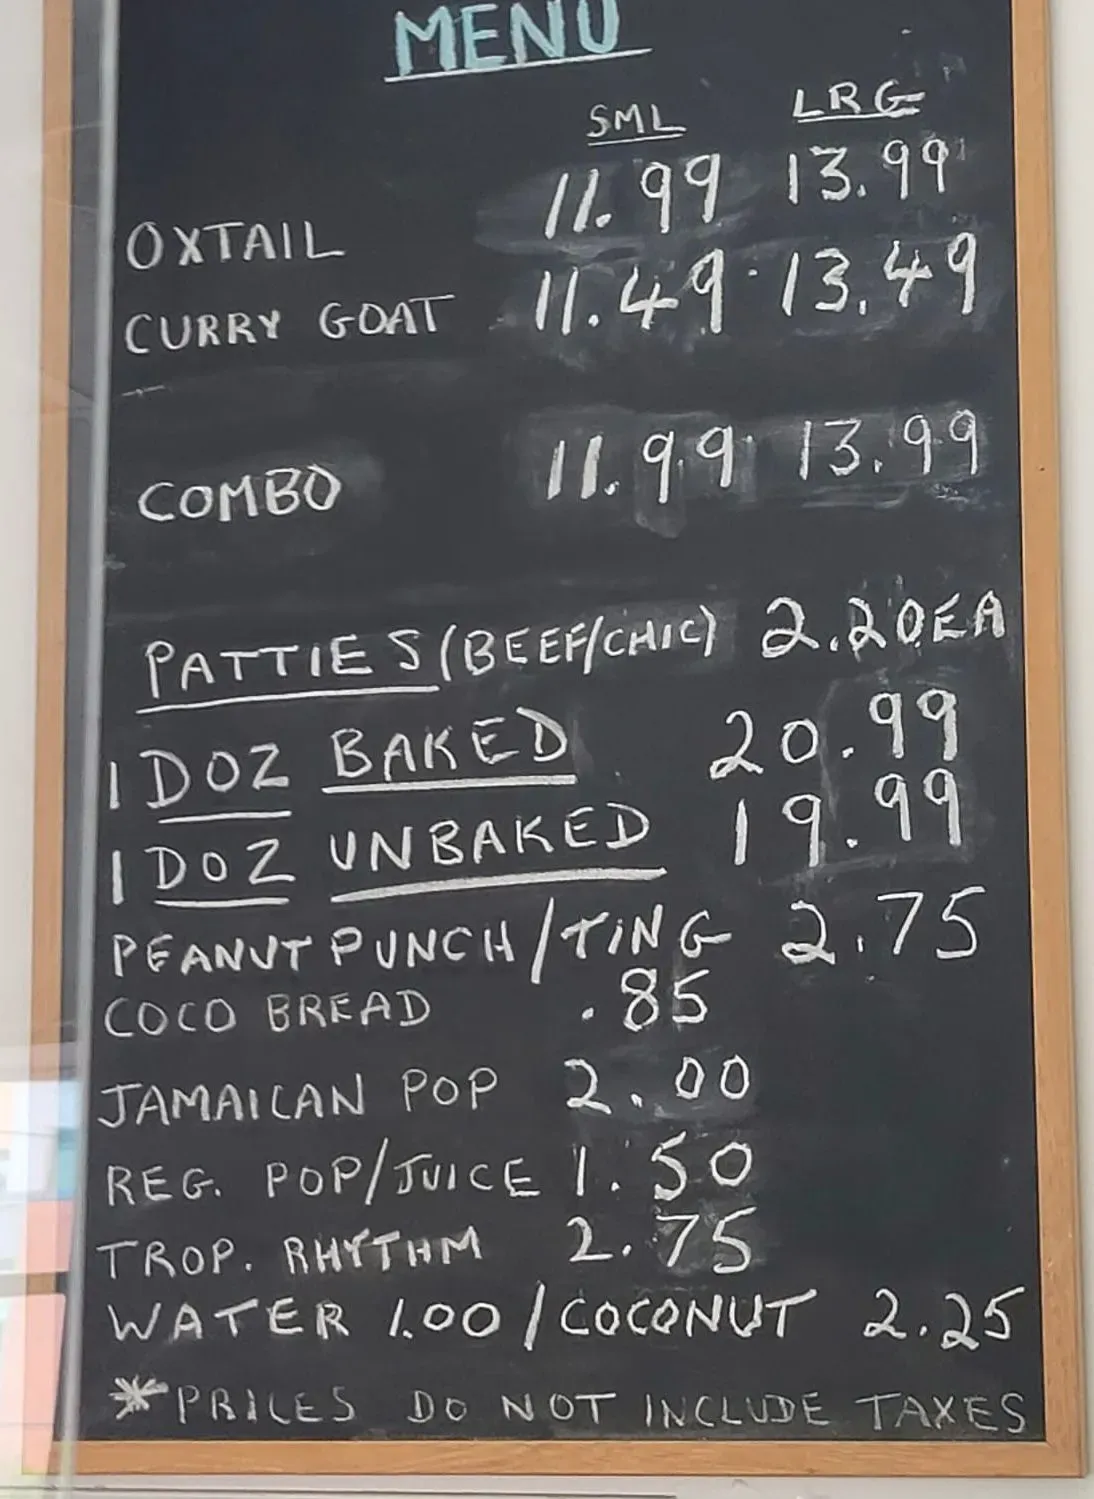 MENU
SML LRG
OXTAIL 11.99 13.99
CURRY GOAT 11.49 13.49
COMBO 11.99 13.99
PATTIES (BEEF/CHIC) 2.20EA
1 DOZ BAKED 20.99
1 DOZ UNBAKED 19.99
PEANUT PUNCH/TING 2.75
COCO BREAD .85
JAMAICAN POP 2.00
REG. POP/JUICE 1.50
TROP. RHYTHM 2.75
WATER 1.00/COCONUT 2.25
*PRICES DO NOT INCLUDE TAXES